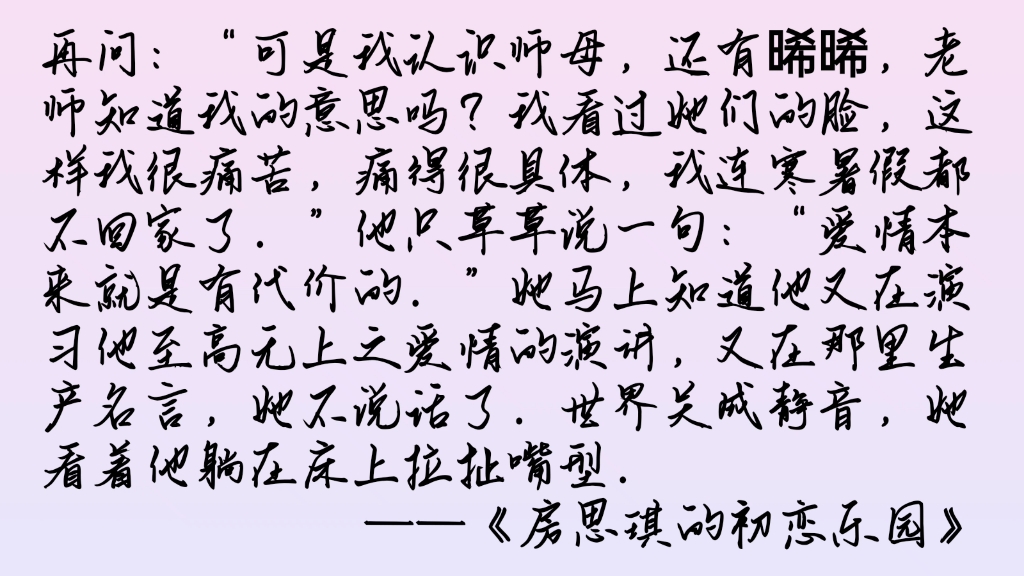 再问：“可是我认识师母，还有晞晞，老
师知道我的意思吗？我看过她们的脸，这
样我很痛苦，痛得很具体，我连寒暑假都
不回家了．”他只草草说一句：“爱情本
来就是有代价的．”她马上知道他又在演
习他至高无上之爱情的演讲，又在那里生
产名言，她不说话了．世界关成静音，她
看着他躺在床上拉扯嘴型．
——《房思琪的初恋乐园》